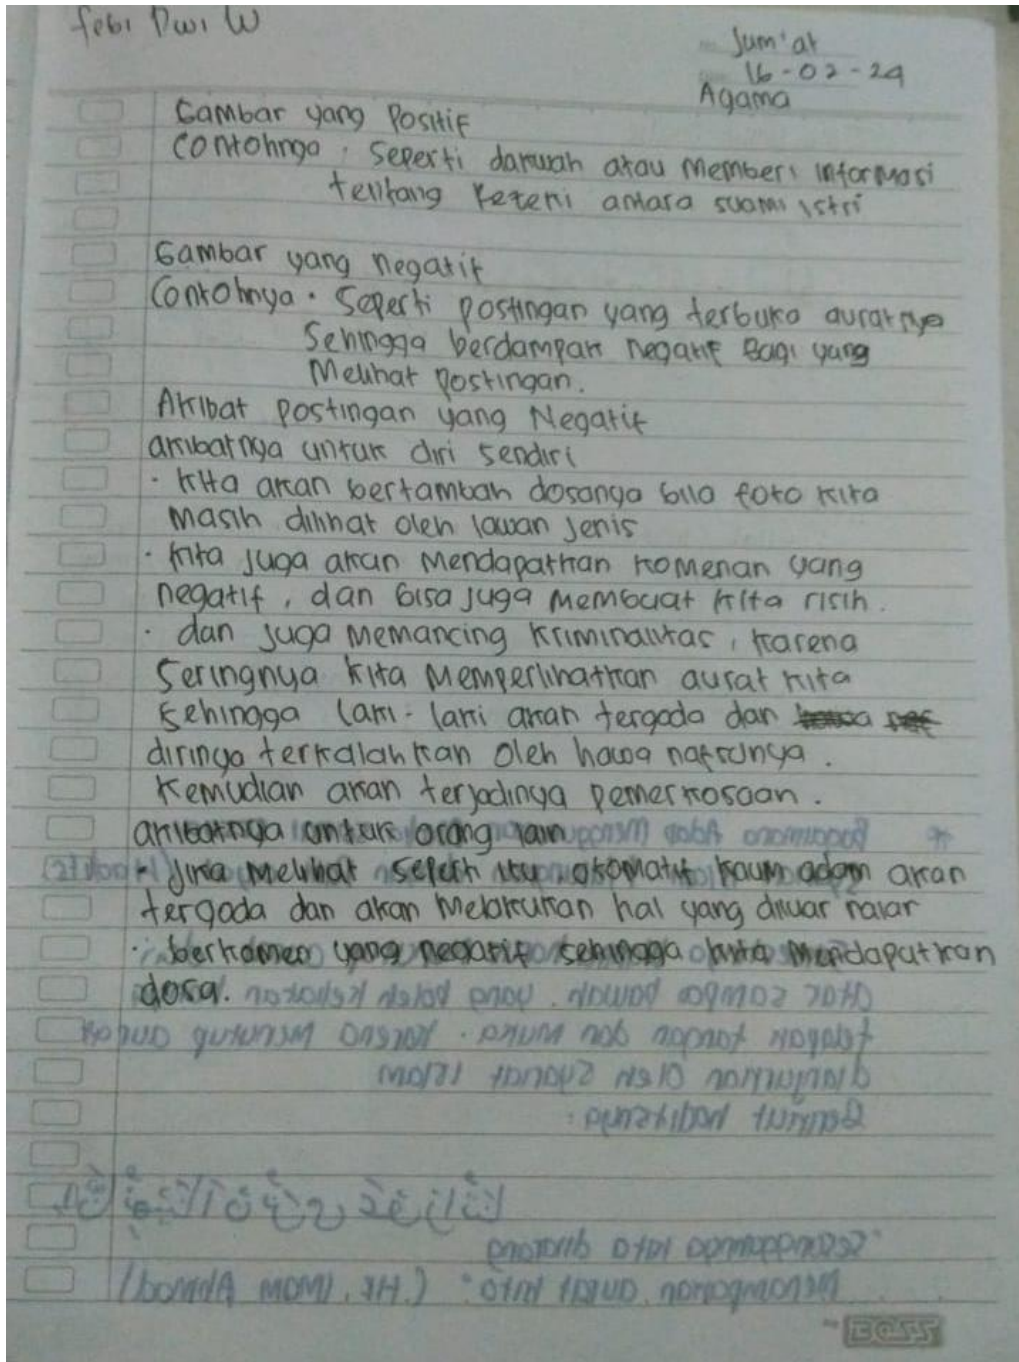 Febi Dwi W
Jum'at
16-02-24
Agama
Gambar yang Positif
Contohnya : Seperti dakwah atau Memberi informasi
tentang keteni antara suami istri
Gambar yang negatif
Contohnya : Seperti postingan yang terbuka auratnya
Sehingga berdampak negatif Bagi yang
Melihat postingan.
Akibat postingan yang Negatif
akibatnya untuk diri sendiri
· kita akan bertambah dosanya bila foto kita
Masih dilihat oleh lawan jenis
· kita juga akan Mendapatkan komenan yang
negatif, dan bisa juga membuat kita risih.
· dan juga Memancing Kriminalitas, karena
Seringnya kita Memperlihatkan aurat kita
Sehingga laki-laki akan tergoda dan
dirinya terkalahkan oleh hawa nafsunya.
Kemudian akan terjadinya pemerkosaan.
akibatnya untuk orang lain
· Jika Melihat seperti itu otomatis kaum adam akan
tergoda dan akan Melakukan hal yang diluar nalar
· berkomen yang negatif sehingga kita Mendapatkan
dosa.
BOSS